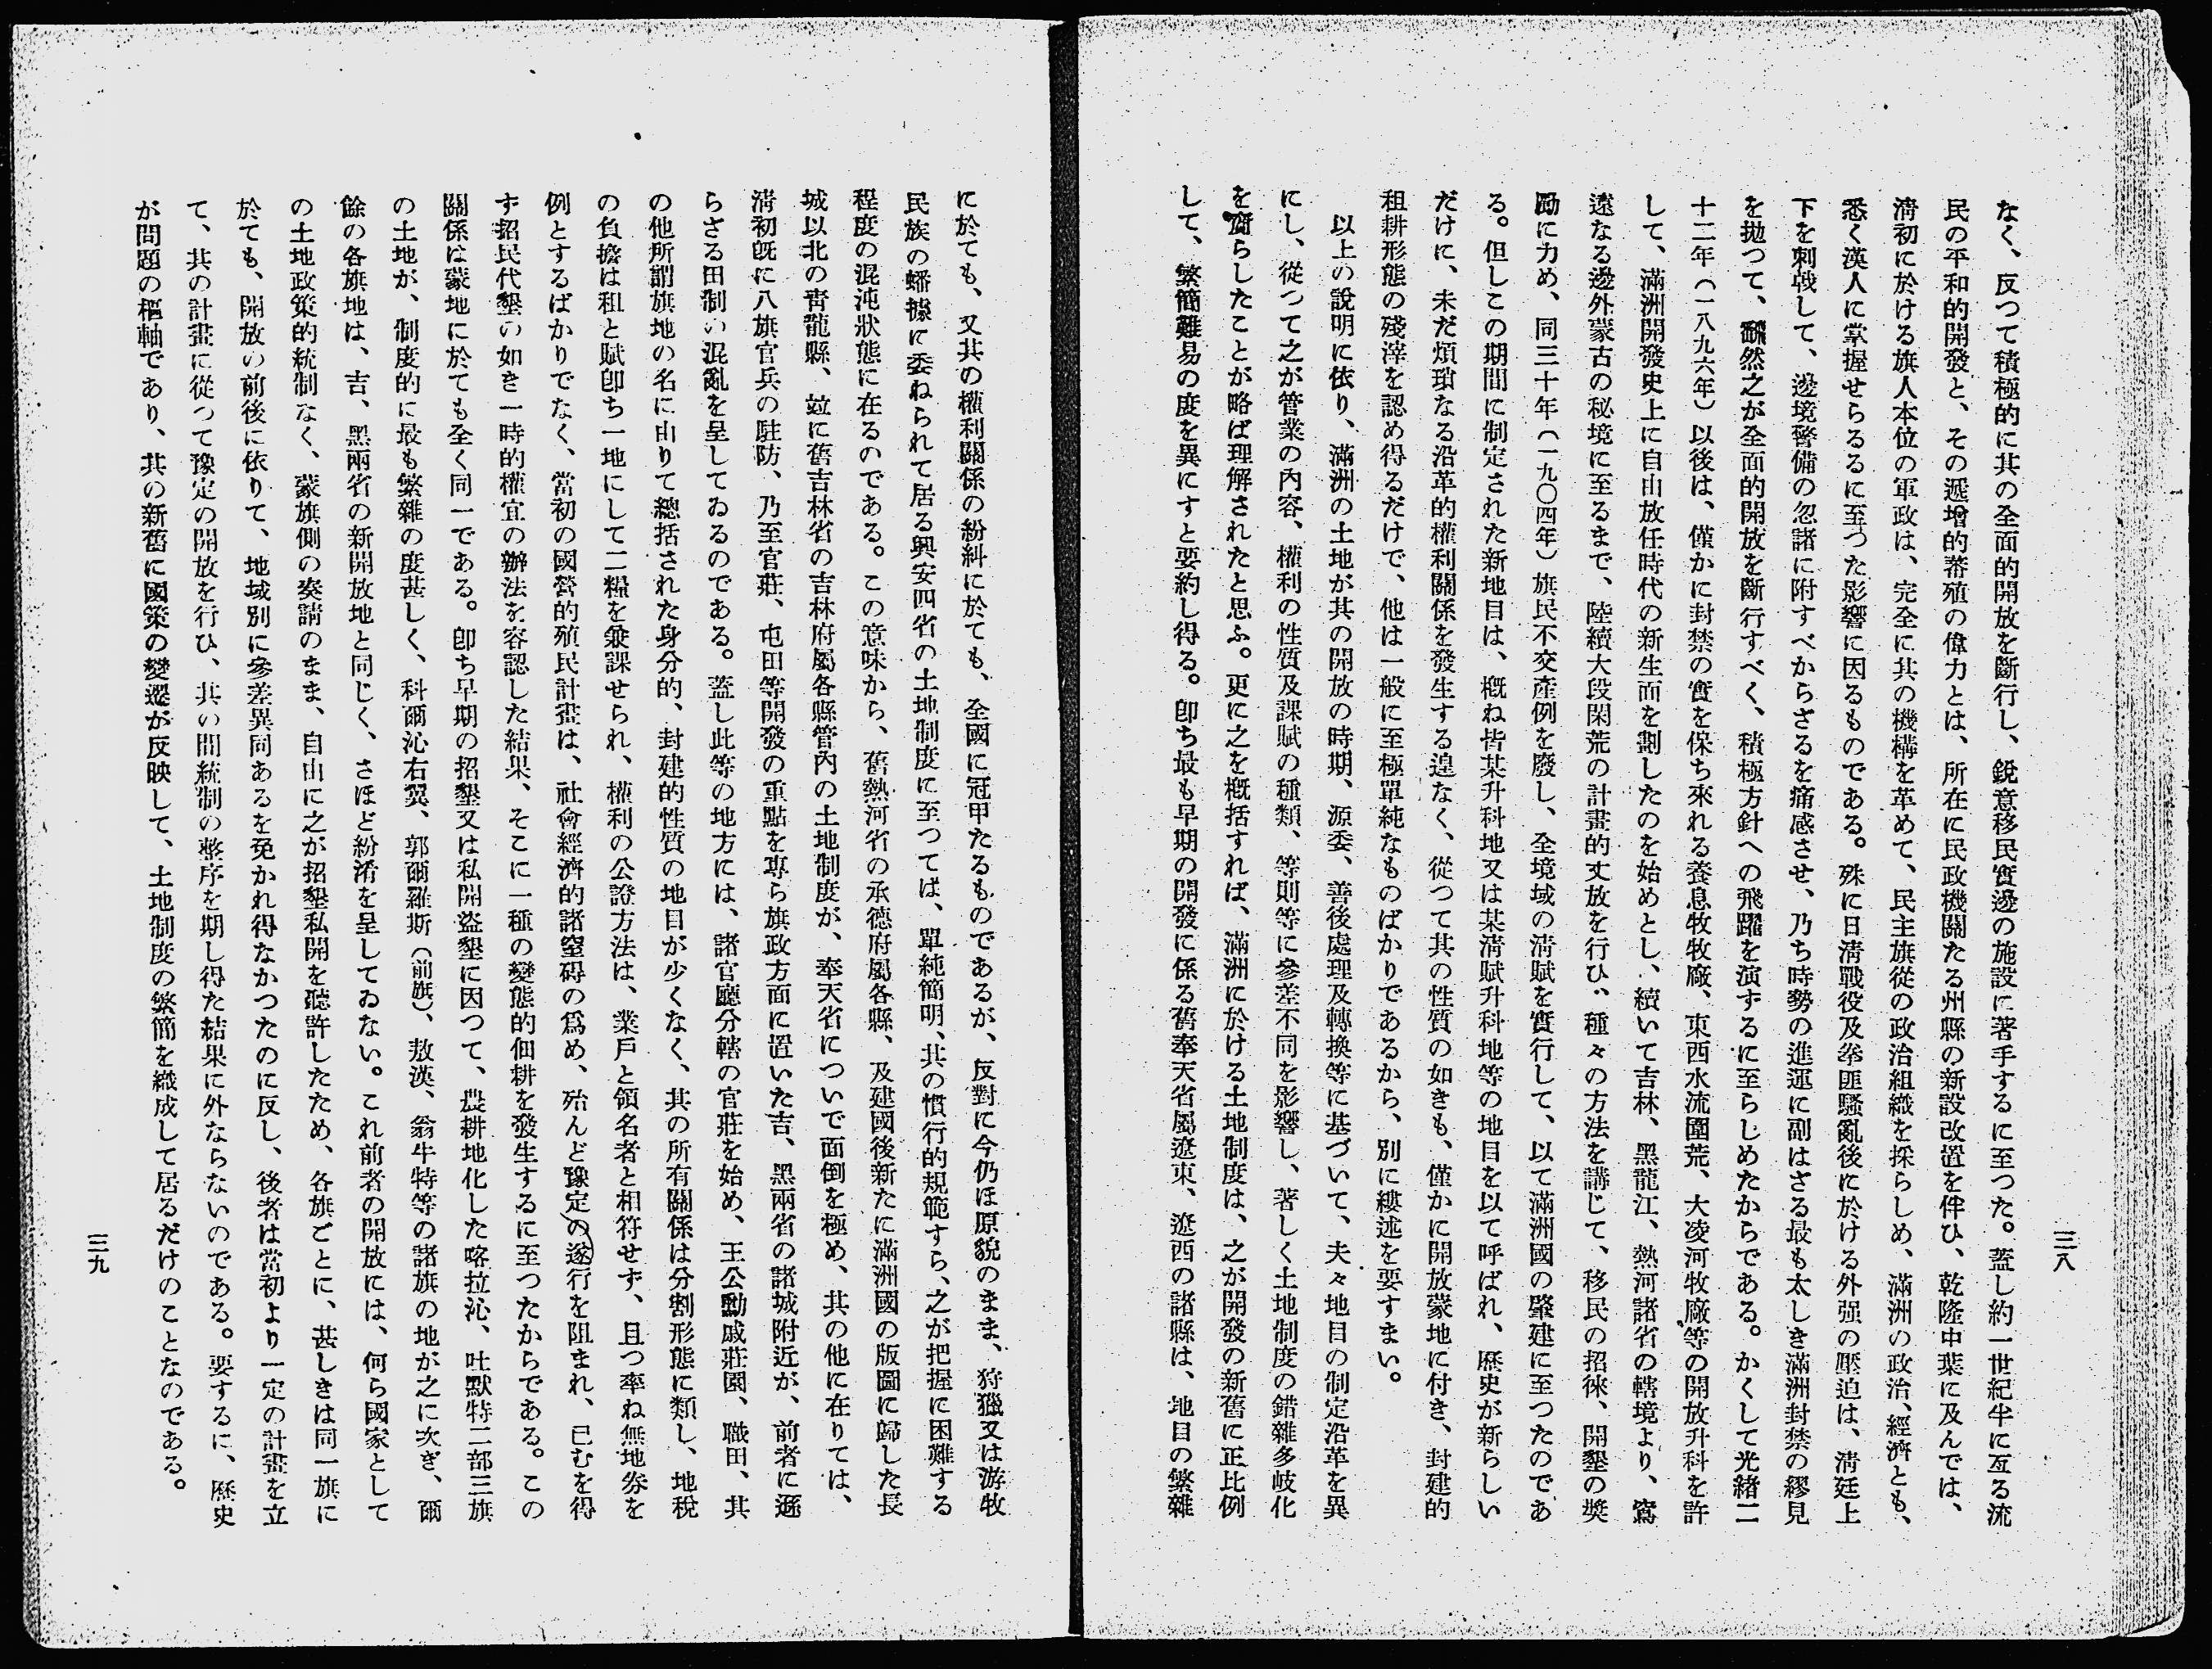 三八
なく、反つて積極的に其の全面的開放を斷行し、銳意移民實邊の施設に著手するに至つた。蓋し約一世紀半に亙る流
民の平和的開發と、その遞增的蕃殖の偉力とは、所在に民政機關たる州縣の新設改置を伴ひ、乾隆中葉に及んでは、
淸初に於ける旗人本位の軍政は、完全に其の機構を革めて、民主旗從の政治組織を採らしめ、滿洲の政治、經濟とも、
悉く漢人に掌握せらるるに至つた影響に因るものである。殊に日淸戰役及拳匪騷亂後に於ける外强の壓迫は、淸廷上
下を刺戟して、邊境警備の忽諸に附すべからざるを痛感させ、乃ち時勢の進運に副はざる最も太しき滿洲封禁の繆見
を拋つて、飜然之が全面的開放を斷行すべく、積極方針への飛躍を演ずるに至らしめたからである。かくして光緖二
十二年（一八九六年）以後は、僅かに封禁の實を保ち來れる養息牧牧廠、東西水流圍荒、大凌河牧廠等の開放升科を許
して、滿洲開發史上に自由放任時代の新生面を劃したのを始めとし、續いて吉林、黑龍江、熱河諸省の轄境より、窵
遠なる邊外蒙古の秘境に至るまで、陸續大段閑荒の計畫的丈放を行ひ、種々の方法を講じて、移民の招徠、開墾の奬
勵に力め、同三十年（一九〇四年）旗民不交產例を廢し、全境域の淸賦を實行して、以て滿洲國の肇建に至つたのであ
る。但しこの期間に制定された新地目は、槪ね皆某升科地又は某淸賦升科地等の地目を以て呼ばれ、歷史が新らしい
だけに、未だ煩瑣なる沿革的權利關係を發生する遑なく、從つて其の性質の如きも、僅かに開放蒙地に付き、封建的
租耕形態の殘滓を認め得るだけで、他は一般に至極單純なものばかりであるから、別に縷述を要すまい。
以上の說明に依り、滿洲の土地が其の開放の時期、源委、善後處理及轉換等に基づいて、夫々地目の制定沿革を異
にし、從つて之が管業の內容、權利の性質及課賦の種類、等則等に參差不同を影響し、著しく土地制度の錯雜多岐化
を齎らしたことが略ぼ理解されたと思ふ。更に之を槪括すれば、滿洲に於ける土地制度は、之が開發の新舊に正比例
して、繁簡難易の度を異にすと要約し得る。卽ち最も早期の開發に係る舊奉天省屬遼東、遼西の諸縣は、地目の繁雜
に於ても、又其の權利關係の紛糾に於ても、全國に冠甲たるものであるが、反對に今仍ほ原貌のまま、狩獵又は游牧
民族の蟠據に委ねられて居る興安四省の土地制度に至つては、單純簡明、其の慣行的規範すら、之が把握に困難する
程度の混沌狀態に在るのである。この意味から、舊熱河省の承德府屬各縣、及建國後新たに滿洲國の版圖に歸した長
城以北の靑龍縣、竝に舊吉林省の吉林府屬各縣管內の土地制度が、奉天省についで面倒を極め、其の他に在りては、
淸初旣に八旗官兵の駐防、乃至官莊、屯田等開發の重點を專ら旗政方面に置いた吉、黑兩省の諸城附近が、前者に遜
らざる田制の混亂を呈してゐるのである。蓋し此等の地方には、諸官廳分轄の官莊を始め、王公勳戚莊園、職田、其
の他所謂旗地の名に由りて總括された身分的、封建的性質の地目が少くなく、其の所有關係は分割形態に類し、地稅
の負擔は租と賦卽ち一地にして二糧を兼課せられ、權利の公證方法は、業戶と領名者と相符せず、且つ率ね無地劵を
例とするばかりでなく、當初の國營的殖民計畫は、社會經濟的諸窒碍の爲め、殆んど豫定の遂行を阻まれ、已むを得
ず招民代墾の如き一時的權宜の辦法を容認した結果、そこに一種の變態的佃耕を發生するに至つたからである。この
關係は蒙地に於ても全く同一である。卽ち早期の招墾又は私開盜墾に因つて、農耕地化した喀拉沁、吐默特二部三旗
の土地が、制度的に最も繁雜の度甚しく、科爾沁右翼、郭爾羅斯（前旗）、敖漢、翁牛特等の諸旗の地が之に次ぎ、爾
餘の各旗地は、吉、黑兩省の新開放地と同じく、さほど紛淆を呈してゐない。これ前者の開放には、何ら國家として
の土地政策的統制なく、蒙旗側の奏請のまま、自由に之が招墾私開を聽許したため、各旗ごとに、甚しきは同一旗に
於ても、開放の前後に依りて、地域別に參差異同あるを免かれ得なかつたのに反し、後者は當初より一定の計畫を立
て、其の計畫に從つて豫定の開放を行ひ、其の間統制の整序を期し得た結果に外ならないのである。要するに、歷史
が問題の樞軸であり、其の新舊に國策の變遷が反映して、土地制度の繁簡を織成して居るだけのことなのである。
三九